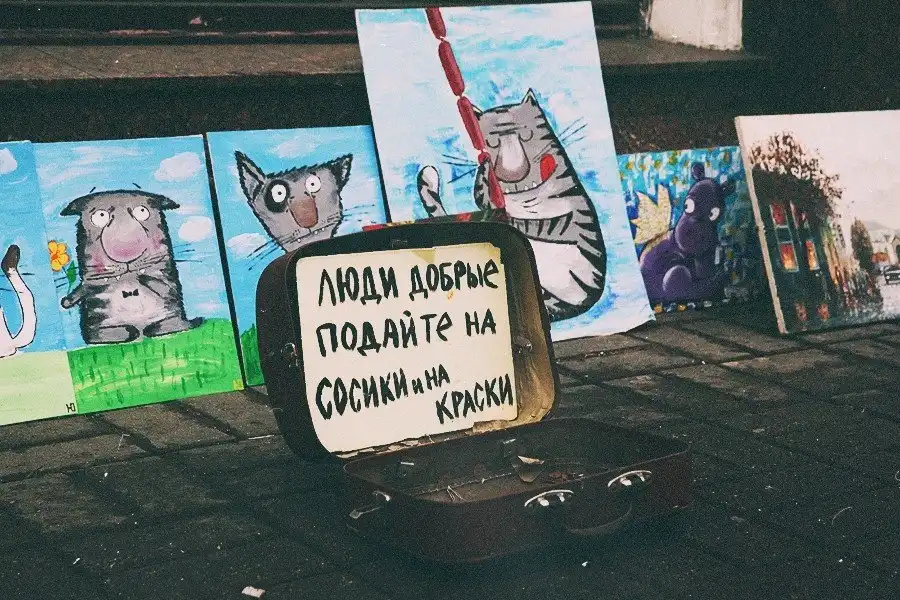 ЛЮДИ ДОБРЫЕ
ПОДАЙТЕ НА
СОСИКИ и НА
КРАСКИ
Ю